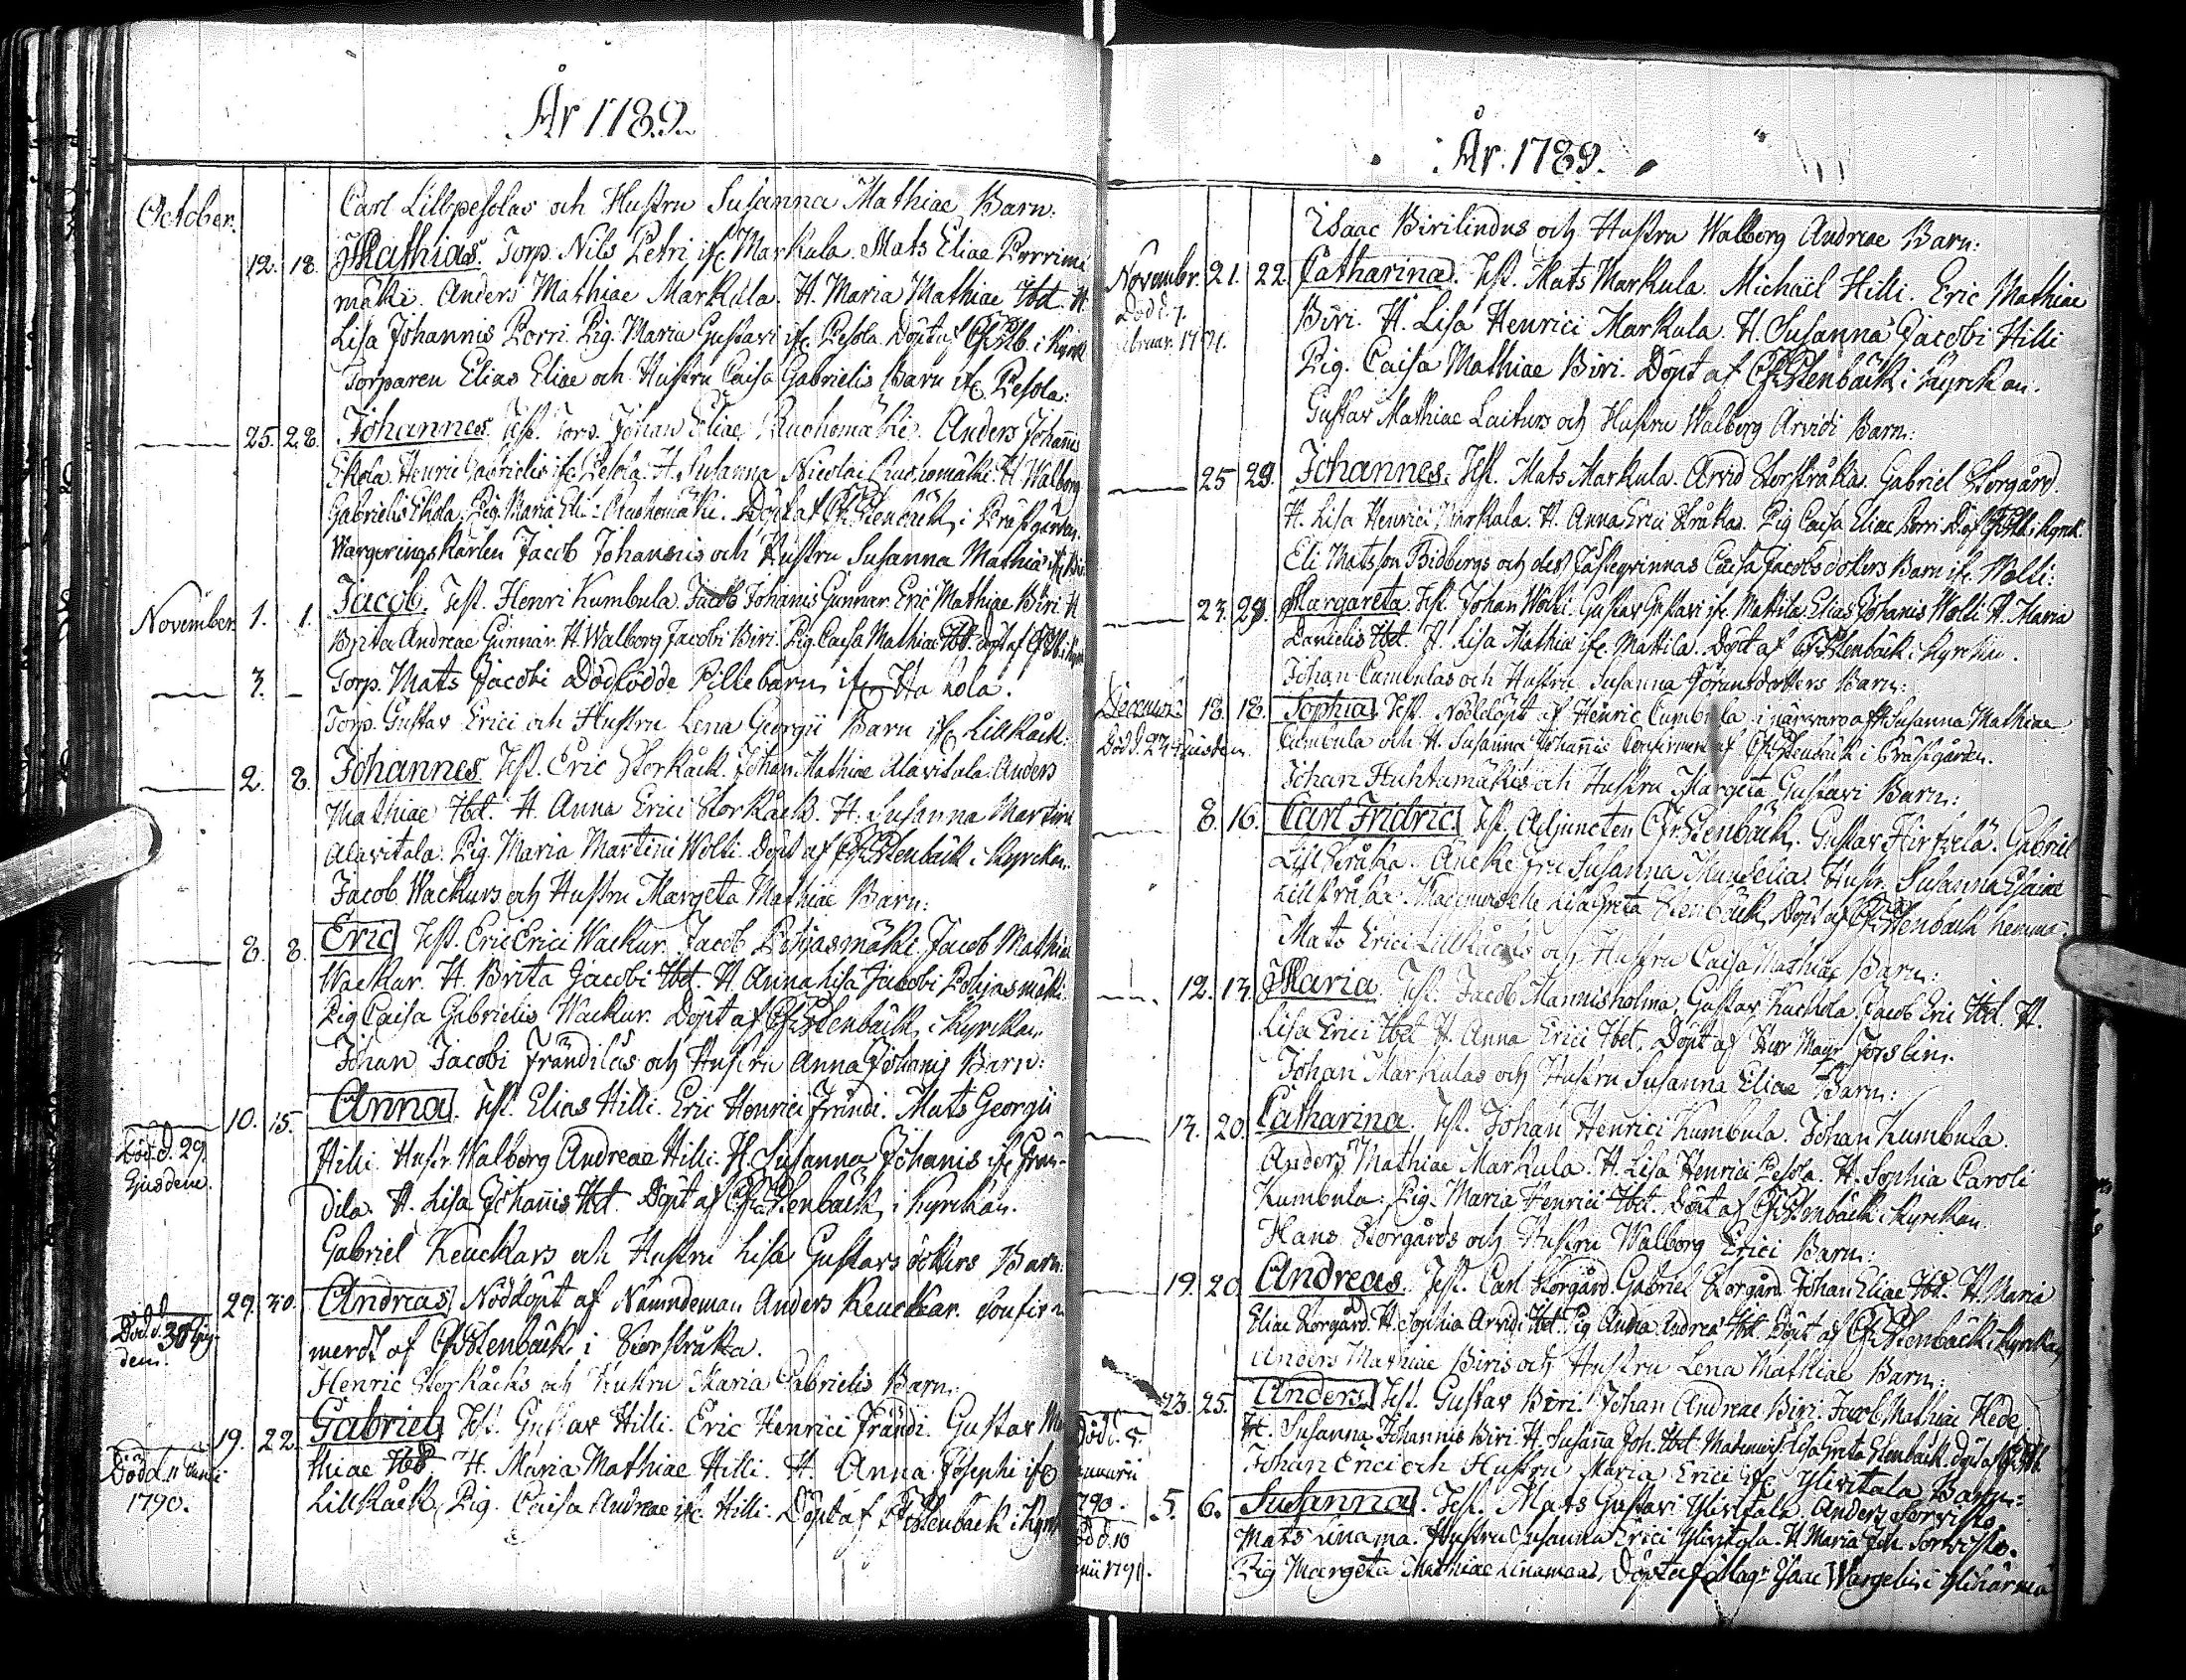 År 1789.
October.
Carl Lillpesolas och Hustru Susanna Mathiae Barn:
12. 18. Mathias. Torp. Nils Petri ifr. Markula. Mats Eliae Porrimä
mäki. Anders Mathiae Markula. H. Maria Mathiae Ibd. H.
Lisa Johannis Porri. Pig. Maria Gustavi ifr. Pesola. Döpt af i Kyrk.
Torparen Elias Eliae och Hustru Caisa Gabrielis Barn ifr. Pesola:
25. 28. Johannes. Test. Torp. Johan Eliae Ruohomäki. Anders Johañis
Ekola. Henric Gabrielis ifr. Pesola. H. Susanna Nicolai Ruohomäki. H. Walborg
Gabrielis Ekola. Pig. Maria Eli: Ruohomäki. Döpt af Stenbäck, i Prästgården.
Wargeringskarlen Jacob Johannis och Hustru Susanna Mathiae ifr. Biri
November 1. 1. Jacob. Test. Henric Kumbula. Jacob Johanis Gunnar. Eric Mathiae Biri. H.
Brita Andreae Gunnar. H. Walborg Jacobi Biri. Pig. Caisa Mathiae Ibd. döpt af i Kyrk.
3. – Torp. Mats Jacobi Dödfödde Piltebarn ifr. Hakola.
Torp. Gustav Erici och Hustru Lena Georgii Barn ifr. Lillkåck:
2. 8. Johannes. Test. Eric Storkåck. Johan Mathiae Alavitala. Anders
Mathiae Ibd. H. Anna Erici Storkåck. H. Susanna Martini
Alavitala. Pig. Maria Martini Wolti. Döpt af Stenbäck i Kyrckan.
Jacob Wackurs och Hustru Margeta Mathiae Barn:
8. 8. Eric Test. Eric Erici Wackur. Jacob Pohjasmäki. Jacob Mathiae
Wackur. H. Brita Jacobi Ibd. H. Anna Lisa Jacobi Pohjasmäki.
Pig Caisa Gabrielis Wackur. Döpt af Stenbäck, i Kyrckan.
Johan Jacobi Frändilas och Hustru Anna Johanis Barn:
10. 15. Anna. Test. Elias Hilli. Eric Henrici Frändi. Mats Georgii
Död d. 29.
Ejusdem.
Hilli. Hustr. Walborg Andreae Hilli. H. Susanna Johanis ifr. Frän-
dila. H. Lisa Johañis Ibd. Döpt af Stenbäck, i Kyrckan.
Gabriel Keuckars och Hustru Lisa Gustavs dotters Barn:
29. 30. Andreas. Nöddöpt af Nämndeman Anders Keuckar. Confir-
Död d. 30 Ejus-
dem.
merdt af Stenbäck i Storstråka.
Henric Storkåcks och Hustru Maria Gabrielis Barn:
19. 22. Gabriel Test. Gustav Hilli. Eric Henrici Frändi. Gustav Ma-
Död d. 11
1790.
thiae Ibd. H. Maria Mathiae Hilli. H. Anna Josephi ifr.
Lillkåck. Pig. Caisa Andreae ifr. Hilli. Döpt af Stenbäck i Kyrk
År. 1789.
Isaac Birilindus och Hustru Walborg Andreae Barn:
Novembr. 21. 22. Catharina. Test. Mats Markula. Michaël Hilli. Eric Mathiae
Död d. 7.
Biri. H. Lisa Henrici Markula. H. Susanna Jacobi Hilli
Pig. Caisa Mathiae Biri. Döpt af Stenbäck i Kyrckan.
Gustav Mathiae Laiturs och Hustru Walborg Arvidi Barn:
25 29. Johannes. Test. Mats Markula. Arvid Storstråka. Gabriel Storgård.
H. Lisa Henrici Markula. H. Anna Erici Stråka. Pig Caisa Eliae Porri. D. af i Kyrck.
Eli Matsson Bidbergs och dess Fästeqvinnas Caisa Jacobsdotters Barn ifr. Wolti:
23. 29. Margareta. Test. Johan Wolti. Gustav Gustavi ifr. Mattila. Elias Johanis Wolti. H. Maria
Danielis Ibd. H. Lisa Mathiae ifr. Mattila. Döpt af Stenbäck i Kyrckan.
Johan Cumbulas och Hustru Susanna Göransdotters Barn:
December 18. 18. Sophia. Test. Nöddöpt af Henric Cumbula i närvaro af H. Susanna Mathiae
Död d. 27 ejusdem.
Cumbula och H. Susanna Johañis Confirmert af Stenbäck i Prästgården.
Johan Huhtamäkis och Hustru Margeta Gustavi Barn:
8. 16. Carl Fridric. Test. Adjuncten Stenbäck. Gustav Hirfvelä. Gabriel
Lillstråka. Enckefru Susanna Mundelia. Hustr. Susanna Esaiae
Lillstråka. Mademoiselle Lisa Greta Stenbäck. Döpt af Stenbäck hemma.
Mats Erici Lillkåcks och Hustru Caisa Mathiae Barn:
12. 13. Maria. Test. Jacob Mannisholma. Gustav Kuckola. Jacob Eric Ibd. H.
Lisa Erici Ibd. H. Anna Erici Ibd. Döpt af Herr Mag. Forslin.
Johan Markulas och Hustru Susanna Eliae Barn:
14. 20. Catharina. Test. Johan Henrici Kumbula. Johan Kumbula.
Anders Mathiae Markula. H. Lisa Henrici Pesola. H. Sophia Caroli
Kumbula. Pig. Maria Henrici Ibd. Döpt af Stenbäck i Kyrckan.
Hans Storgårds och Hustru Walborg Erici Barn:
19. 20. Andreas. Test. Carl Storgård. Gabriel Storgård. Johan Eliae Ibd. H. Maria
Eliae Storgård. H. Sophia Arvidi Ibd. Pig Anna Andreae Ibd. Döpt af Stenbäck i Kyrckan
Anders Mathiae Biris och Hustru Lena Mathiae Barn:
23. 25. Anders. Test. Gustav Biri. Johan Andreae Biri. Jacob Mathiae Hede
Död d. 5.
1790.
H. Susanna Johannis Biri. H. Susanna Joh. Ibd. Lisa Greta Stenbäck. döpt af
Johan Erici och Hustru Maria Erici ifr. Ylivitala Barn:
5. 6. Susanna. Test. Mats Gustavi Ylivitala. Anders Sorvisto.
Död d. 10
1791.
Mats Linama. Hustru Susanna Erici Ylivitala. H. Maria Joh. Sorvisto.
Pig Margeta Mathiae Linamaas. Döpt af Mag. Isaac Wargelin i Ylihärmä